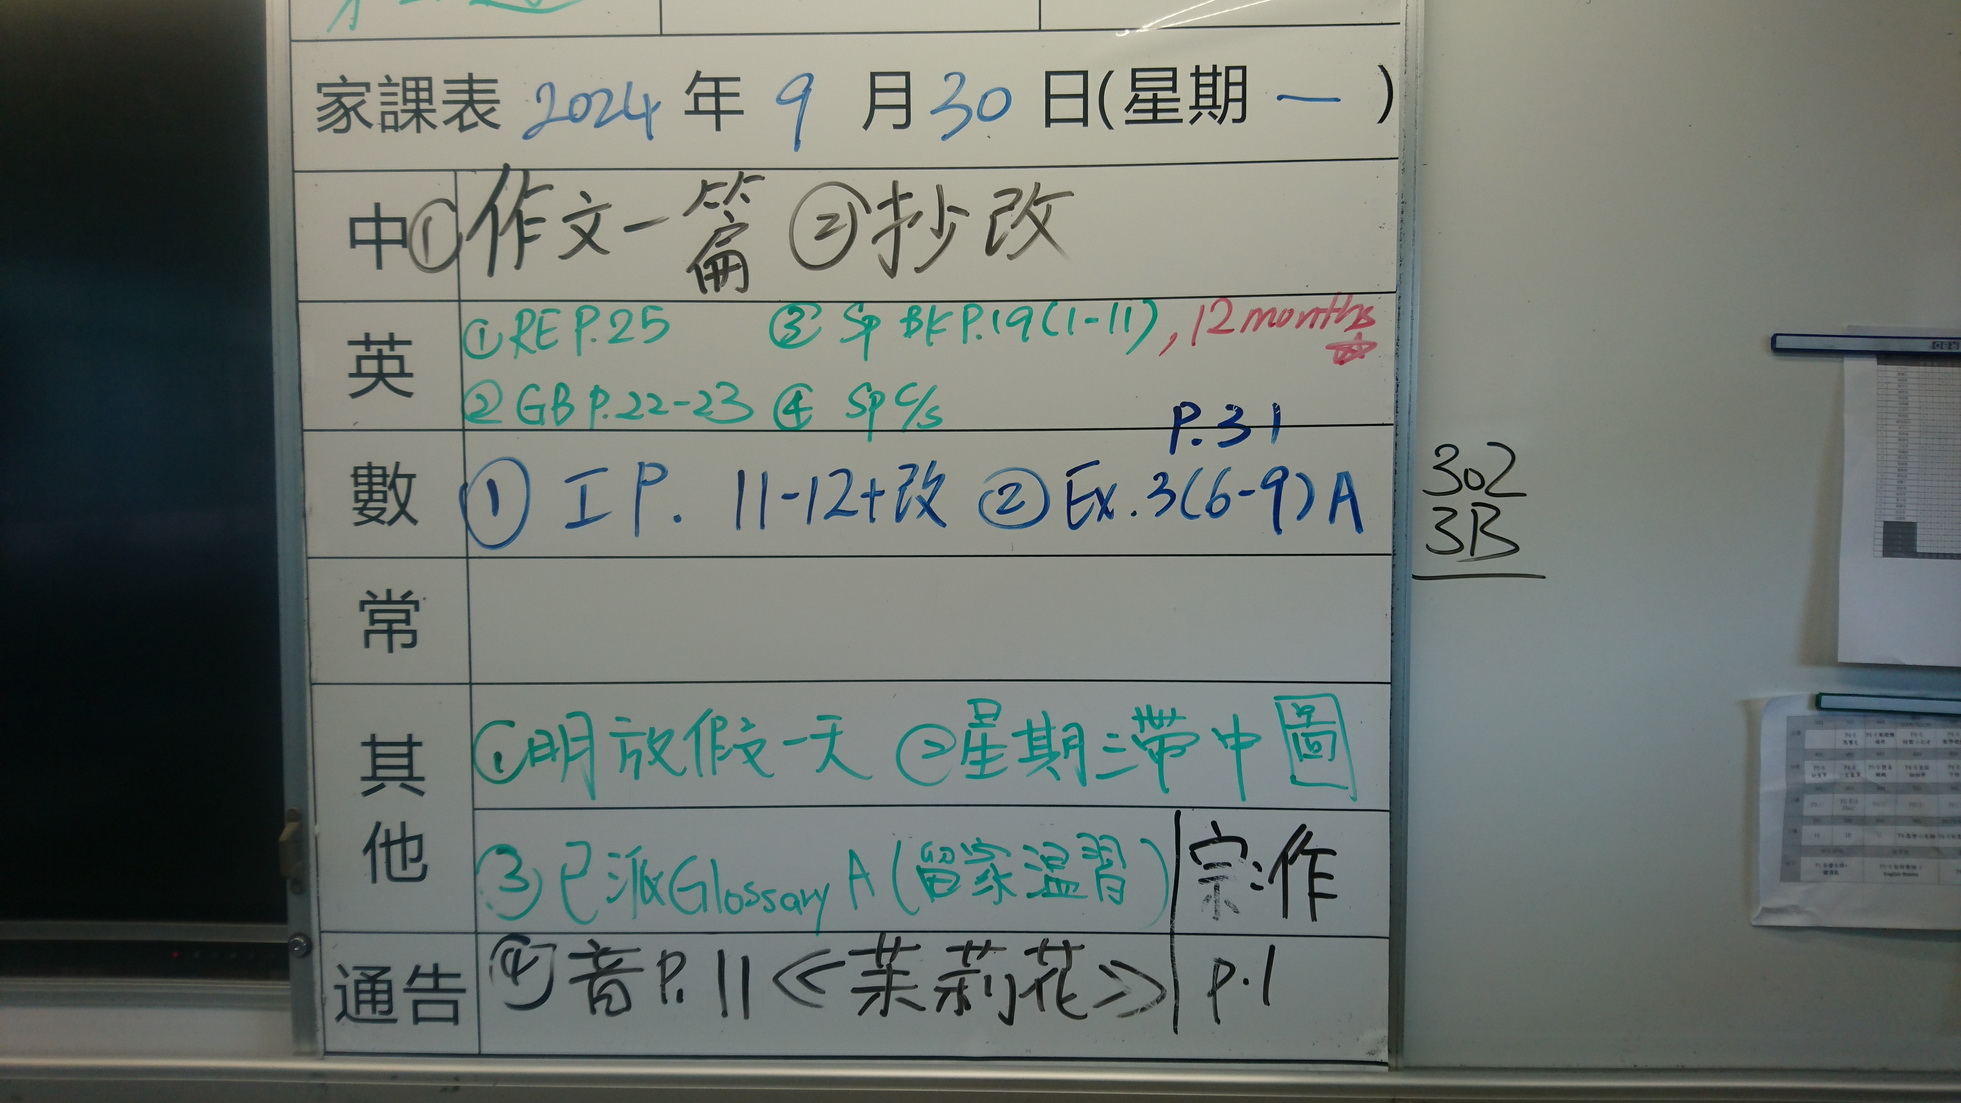 家課表 2024 年 9 月 30 日(星期 一 )
中 ①作文一篇 ②抄改
英 ①RE P.25 ③ Sp BK P.19(1-11), 12 months
② GB P.22-23 ④ Sp C/s
P.31
數 ① I P. 11-12+改 ② Ex.3(6-9)A
302
3B
常
其他 ①明放假一天 ②星期三帶中圖
③已派Glossary A(留家溫習) 宗:作
通告 ④音P.11《茉莉花》 p.1